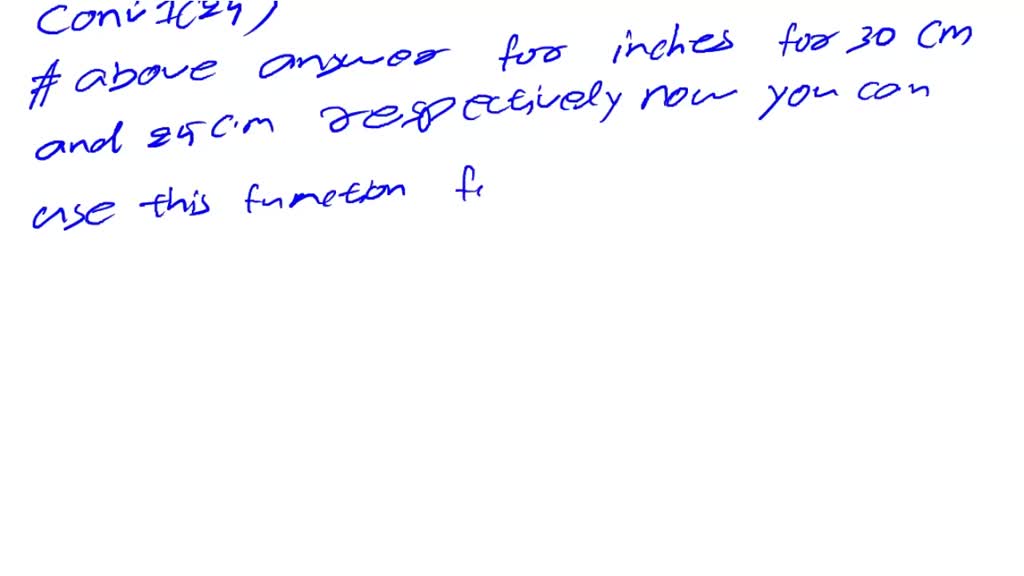 Conv1(24)
# above answer for inches for 30 cm
and 24 cm respectively now you can
use this function fo